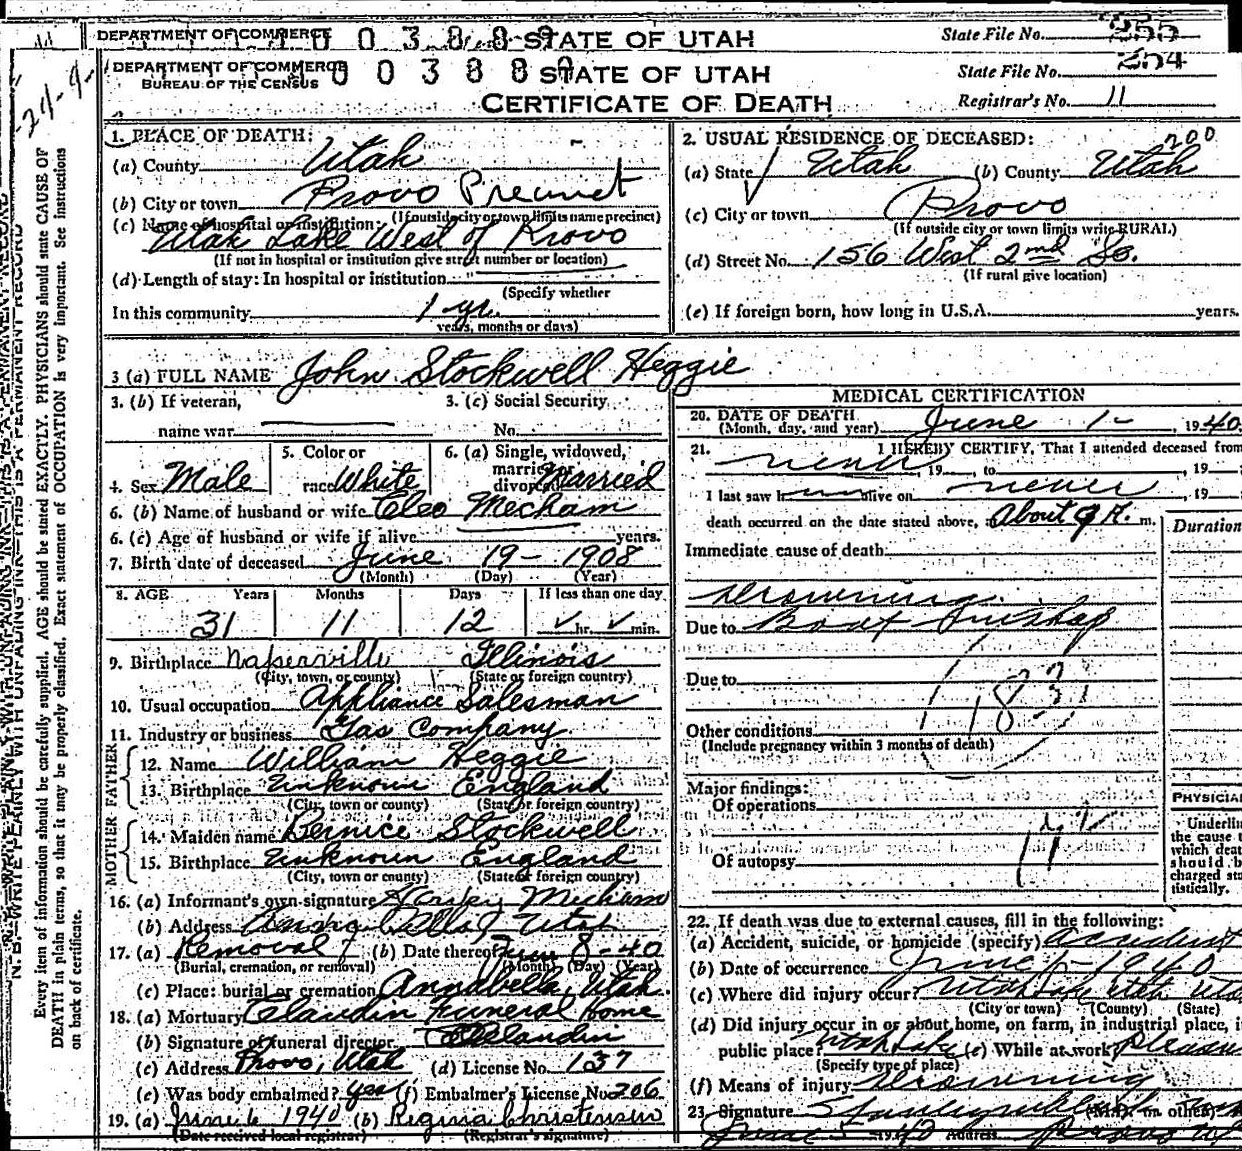 DEPARTMENT OF COMMERCE 00388 STATE OF UTAH State File No. 255
DEPARTMENT OF COMMERCE 00388 STATE OF UTAH State File No. 254
BUREAU OF THE CENSUS
CERTIFICATE OF DEATH Registrar's No. 11
24-9-
N. B.—WRITE PLAINLY WITH UNFADING INK—THIS IS A PERMANENT RECORD
Every item of information should be carefully supplied. AGE should be stated EXACTLY. PHYSICIANS should state CAUSE OF
DEATH in plain terms, so that it may be properly classified. Exact statement of OCCUPATION is very important. See instructions
on back of certificate.
1. PLACE OF DEATH:
(a) County Utah
(b) City or town Provo Precinct
(If outside city or town limits name precinct)
(c) Name of hospital or institution:
Utah Lake West of Provo
(If not in hospital or institution give street number or location)
(d) Length of stay: In hospital or institution
(Specify whether
In this community 1 yr.
years, months or days)
2. USUAL RESIDENCE OF DECEASED: 200
(a) State Utah (b) County Utah
(c) City or town Provo
(If outside city or town limits write RURAL)
(d) Street No. 156 West 2nd So.
(If rural give location)
(e) If foreign born, how long in U.S.A. years.
3 (a) FULL NAME John Stockwell Heggie
3. (b) If veteran, 3. (c) Social Security
name war No.
4. Sex Male 5. Color or race White 6. (a) Single, widowed, married or divorced Married
6. (b) Name of husband or wife Cleo Mecham
6. (c) Age of husband or wife if alive years.
7. Birth date of deceased June 19- 1908
(Month) (Day) (Year)
8. AGE Years Months Days If less than one day
31 11 12 hr. min.
9. Birthplace Naperville Illinois
(City, town, or county) (State or foreign country)
10. Usual occupation Appliance Salesman
11. Industry or business Gas Company
FATHER
12. Name William Heggie
13. Birthplace Unknown England
(City, town or county) (State or foreign country)
MOTHER
14. Maiden name Bernice Stockwell
15. Birthplace Unknown England
(City, town or county) (State or foreign country)
16. (a) Informant's own signature Mecham
(b) Address Utah
17. (a) Removal (b) Date thereof June 8-40
(Burial, cremation, or removal) (Month) (Day) (Year)
(c) Place: burial or cremation Annabella, Utah.
18. (a) Mortuary Claudin Funeral Home
(b) Signature of funeral director Claudin
(c) Address Provo, Utah (d) License No. 137
(e) Was body embalmed? yes (f) Embalmer's License No. 206
19. (a) June 6 1940 (b) Regina Christensen
(Date received local registrar) (Registrar's signature)
MEDICAL CERTIFICATION
20. DATE OF DEATH June 1- , 1940
(Month, day, and year)
21. I HEREBY CERTIFY, That I attended deceased from
never 19 , to , 19
I last saw h alive on never , 19
death occurred on the date stated above, at About 9 A. m.
Duration
Immediate cause of death
Drowning
Due to Boat mishap
Due to
183
Other conditions
(Include pregnancy within 3 months of death)
Major findings:
Of operations
Of autopsy
PHYSICIA
Underlin
the cause t
which deat
should b
charged sta
tistically.
22. If death was due to external causes, fill in the following:
(a) Accident, suicide, or homicide (specify) accident
(b) Date of occurrence June 1-1940
(c) Where did injury occur? Utah Lake Utah Uta
(City or town) (County) (State)
(d) Did injury occur in or about home, on farm, in industrial place, i
public place? Utah Lake (e) While at work? Pleasu
(Specify type of place)
(f) Means of injury Drowning
23. Signature (M.D. or other)
June 5 1940 Address Provo Ut